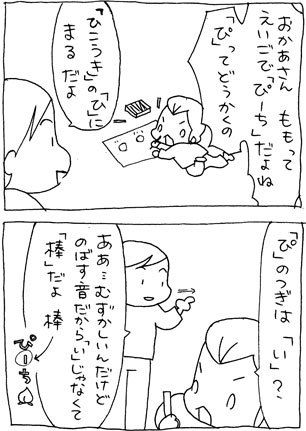 おかあさん ももって
えいごで「ぴーち」だよね
「ぴ」ってどうかくの
「ひこうき」の「ひ」に
まるだよ
「ぴ」のつぎは「い」？
ああ…むずかしいんだけど
のばす音だから「い」じゃなくて
「棒」だよ 棒
ぴーち